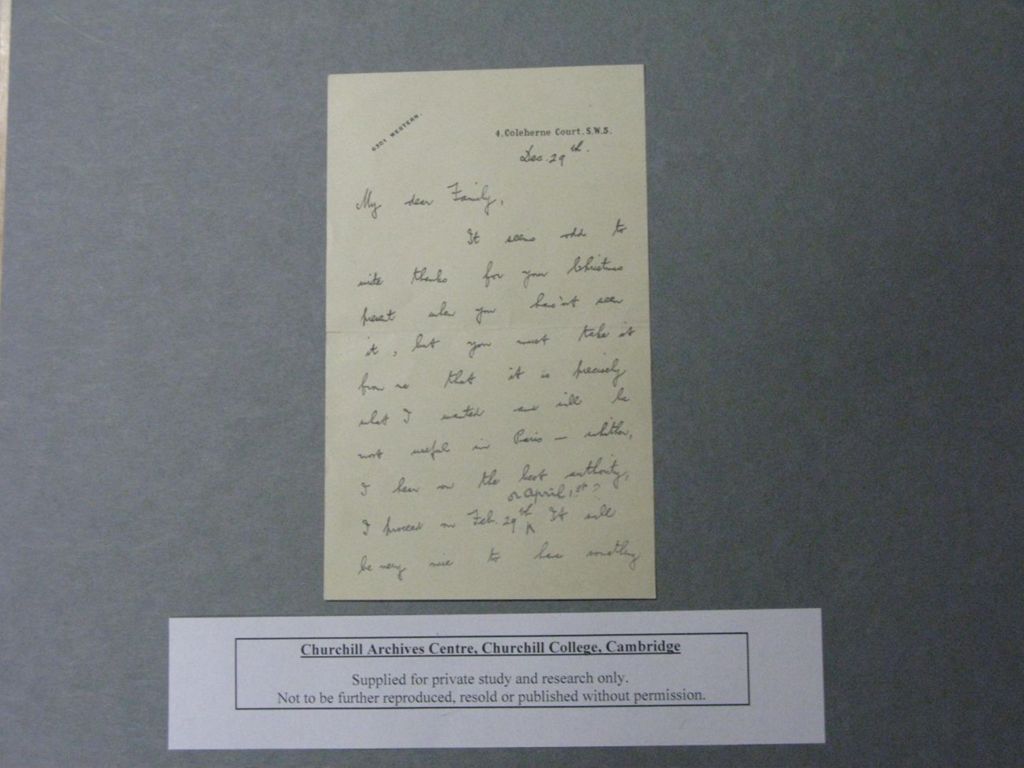 6301 WESTERN.
4, Coleherne Court, S.W.5.
Dec. 29th.
My dear Family,
It seems odd to
write thanks for your Christmas
present when you have'nt seen
it, but you must take it
from me that it is precisely
what I wanted and will be
most useful in Paris – whither,
I hear on the best authority,
or April 1st?
I proceed on Feb. 29th. It will
be very nice to have something
Churchill Archives Centre, Churchill College, Cambridge
Supplied for private study and research only.
Not to be further reproduced, resold or published without permission.